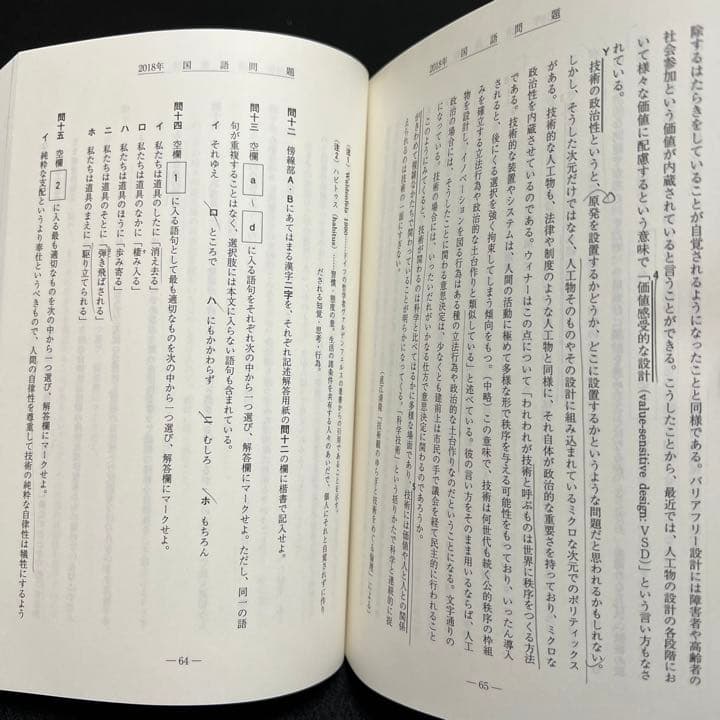 2018年 国語問題
除するはたらきをしていることが自覚されるようになったことと同様である。バリアフリー設計には障害者や高齢者の
社会参加という価値が内蔵されていると言うことができる。こうしたことから、最近では、人工物の設計の各段階にお
いて様々な価値に配慮するという意味で「価値感受的な設計（value-sensitive design: VSD）」という言い方もなさ
れている。
Y
技術の政治性というと、原発を設置するかどうか、どこに設置するかというような問題だと思われるかもしれない。
しかし、そうした次元だけではなく、人工物そのものやその設計に組み込まれているミクロな次元でのポリティックス
がある。技術的な人工物も、法律や制度のような人工物と同様に、それ自体が政治的な重要さを持っており、ミクロな
政治性を内蔵させているのである。ウィナーはこの点について「われわれが技術と呼ぶものは世界に秩序をつくる方法
である。技術的な装置やシステムは、人間の活動に極めて多様な形で秩序を与える可能性をもっており、いったん導入
されると、後にくる選択を強く拘束してしまう傾向をもつ。（中略）この意味で、技術は何世代も続く公的秩序の枠組
みを確立する立法行為や政治的な土台作りと類似している」と述べている。彼の言い方をそのまま用いるならば、人工
物を設計し、イノベーションを図る行為はある種の立法行為や政治的な土台作りなのだということになる。文字通りの
政治の場合には、そうしたことに関わる意思決定は、少なくとも建前上は市民の手で議会を経て民主的に行われること
になっている。技術の場合には、いったいだれがいかなる仕方で意思決定に関わるのであろうか。
このようにみてくると、技術が関わるのは科学と比べてはるかに多様な場面であり、技術には価値や人と人との関係
がきわめて明確なかたちで関わっていることが明らかになってくる。「科学技術」という括りかたで科学と連続的に捉
えられるのは技術の一面にすぎない。
（直江清隆「技術観のゆらぎと技術をめぐる倫理」による）
— 65 —
2018年 国語問題
（注2）ハビトゥス（habitus）……習慣・態度の意。生活の諸条件を共有する人々のあいだで、個人にそれと自覚されずに作り
だされる知覚・思考・行為。
問十二 傍線部A・Bにあてはまる漢字二字を、それぞれ記述解答用紙の問十二の欄に楷書で記入せよ。
問十三 空欄 a ～ d に入る語句をそれぞれ次の中から一つ選び、解答欄にマークせよ。ただし、同一の語
句が重複することはなく、選択肢には本文に入らない語句も含まれている。
イ それゆえ ロ ところで ハ にもかかわらず ニ むしろ ホ もちろん
問十四 空欄 1 に入る語句として最も適切なものを次の中から一つ選び、解答欄にマークせよ。
イ 私たちは道具のしたに「消え去る」
ロ 私たちは道具のなかに「棲み入る」
ハ 私たちは道具のほうに「歩み寄る」
ニ 私たちは道具のそとに「弾き飛ばされる」
ホ 私たちは道具のまえに「駆り立てられる」
問十五 空欄 2 に入る最も適切なものを次の中から一つ選び、解答欄にマークせよ。
イ 純粋な支配というより奉仕というべきもので、人間の自律性を尊重して技術の純粋な自律性は犠牲にするよう
— 64 —